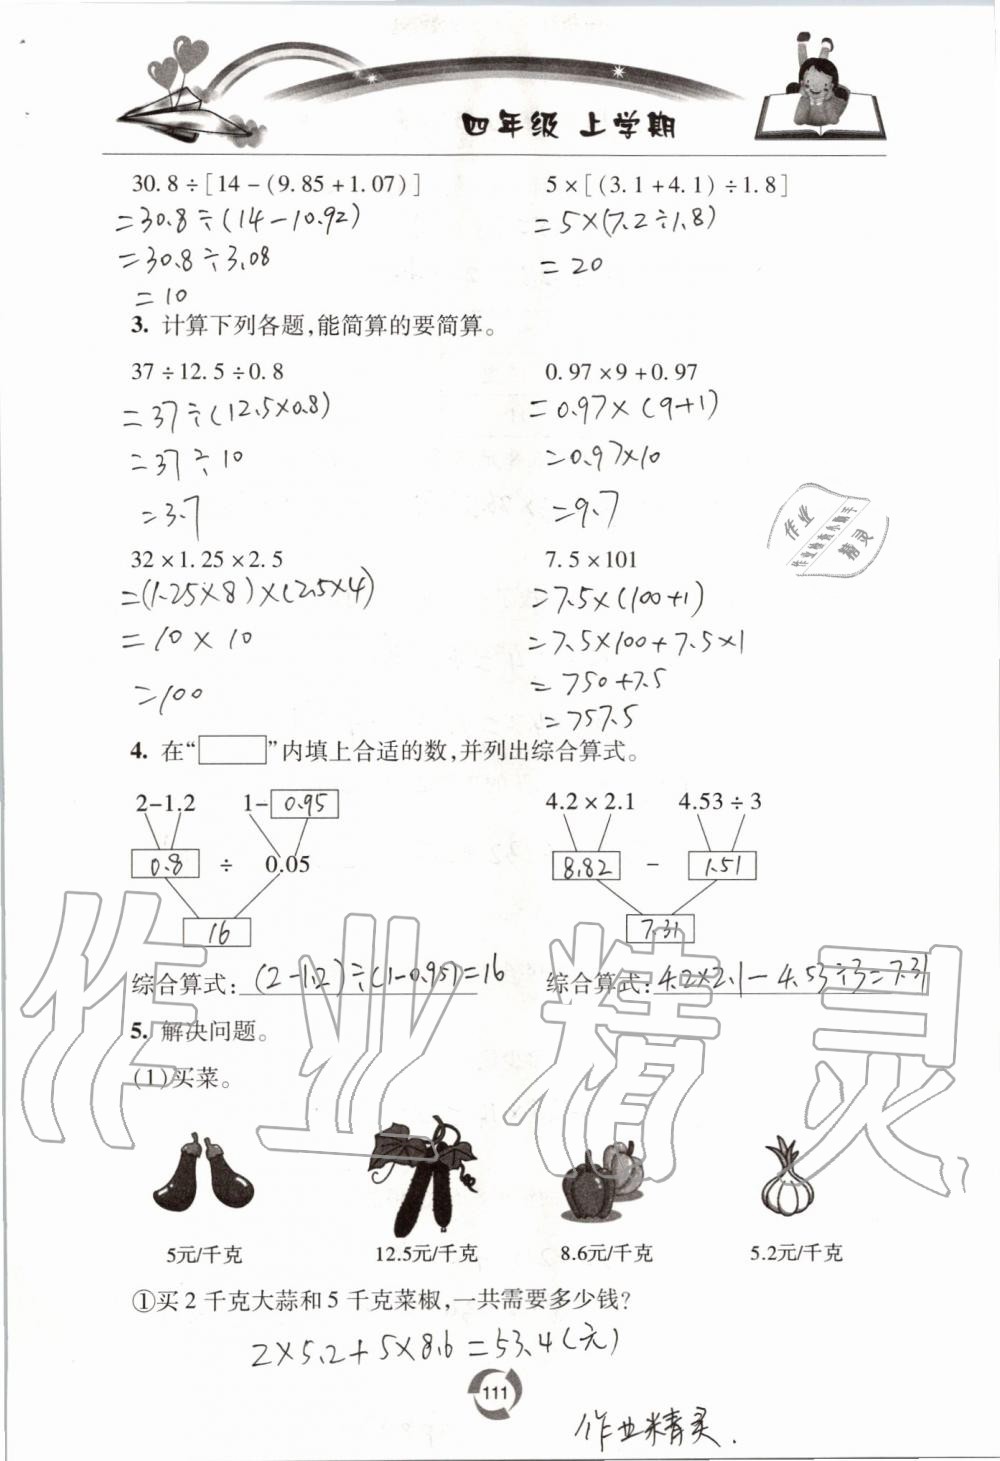 四年级 上学期
30.8÷[14-(9.85+1.07)]
=30.8÷(14-10.92)
=30.8÷3.08
=10
5×[(3.1+4.1)÷1.8]
=5×(7.2÷1.8)
=20
3. 计算下列各题,能简算的要简算。
37÷12.5÷0.8
=37÷(12.5×0.8)
=37÷10
=3.7
0.97×9+0.97
=0.97×(9+1)
=0.97×10
=9.7
作业
作业检查小助手
精灵
32×1.25×2.5
=(1.25×8)×(2.5×4)
=10×10
=100
7.5×101
=7.5×(100+1)
=7.5×100+7.5×1
=750+7.5
=757.5
4. 在“ ”内填上合适的数,并列出综合算式。
2-1.2 1-0.95
0.8 ÷ 0.05
16
综合算式:(2-1.2)÷(1-0.95)=16
4.2×2.1 4.53÷3
8.82 - 1.51
7.31
综合算式:4.2×2.1-4.53÷3=7.31
5. 解决问题。
(1)买菜。
作业精灵
5元/千克 12.5元/千克 8.6元/千克 5.2元/千克
①买2千克大蒜和5千克菜椒,一共需要多少钱?
2×5.2+5×8.6=53.4(元)
111
作业精灵.